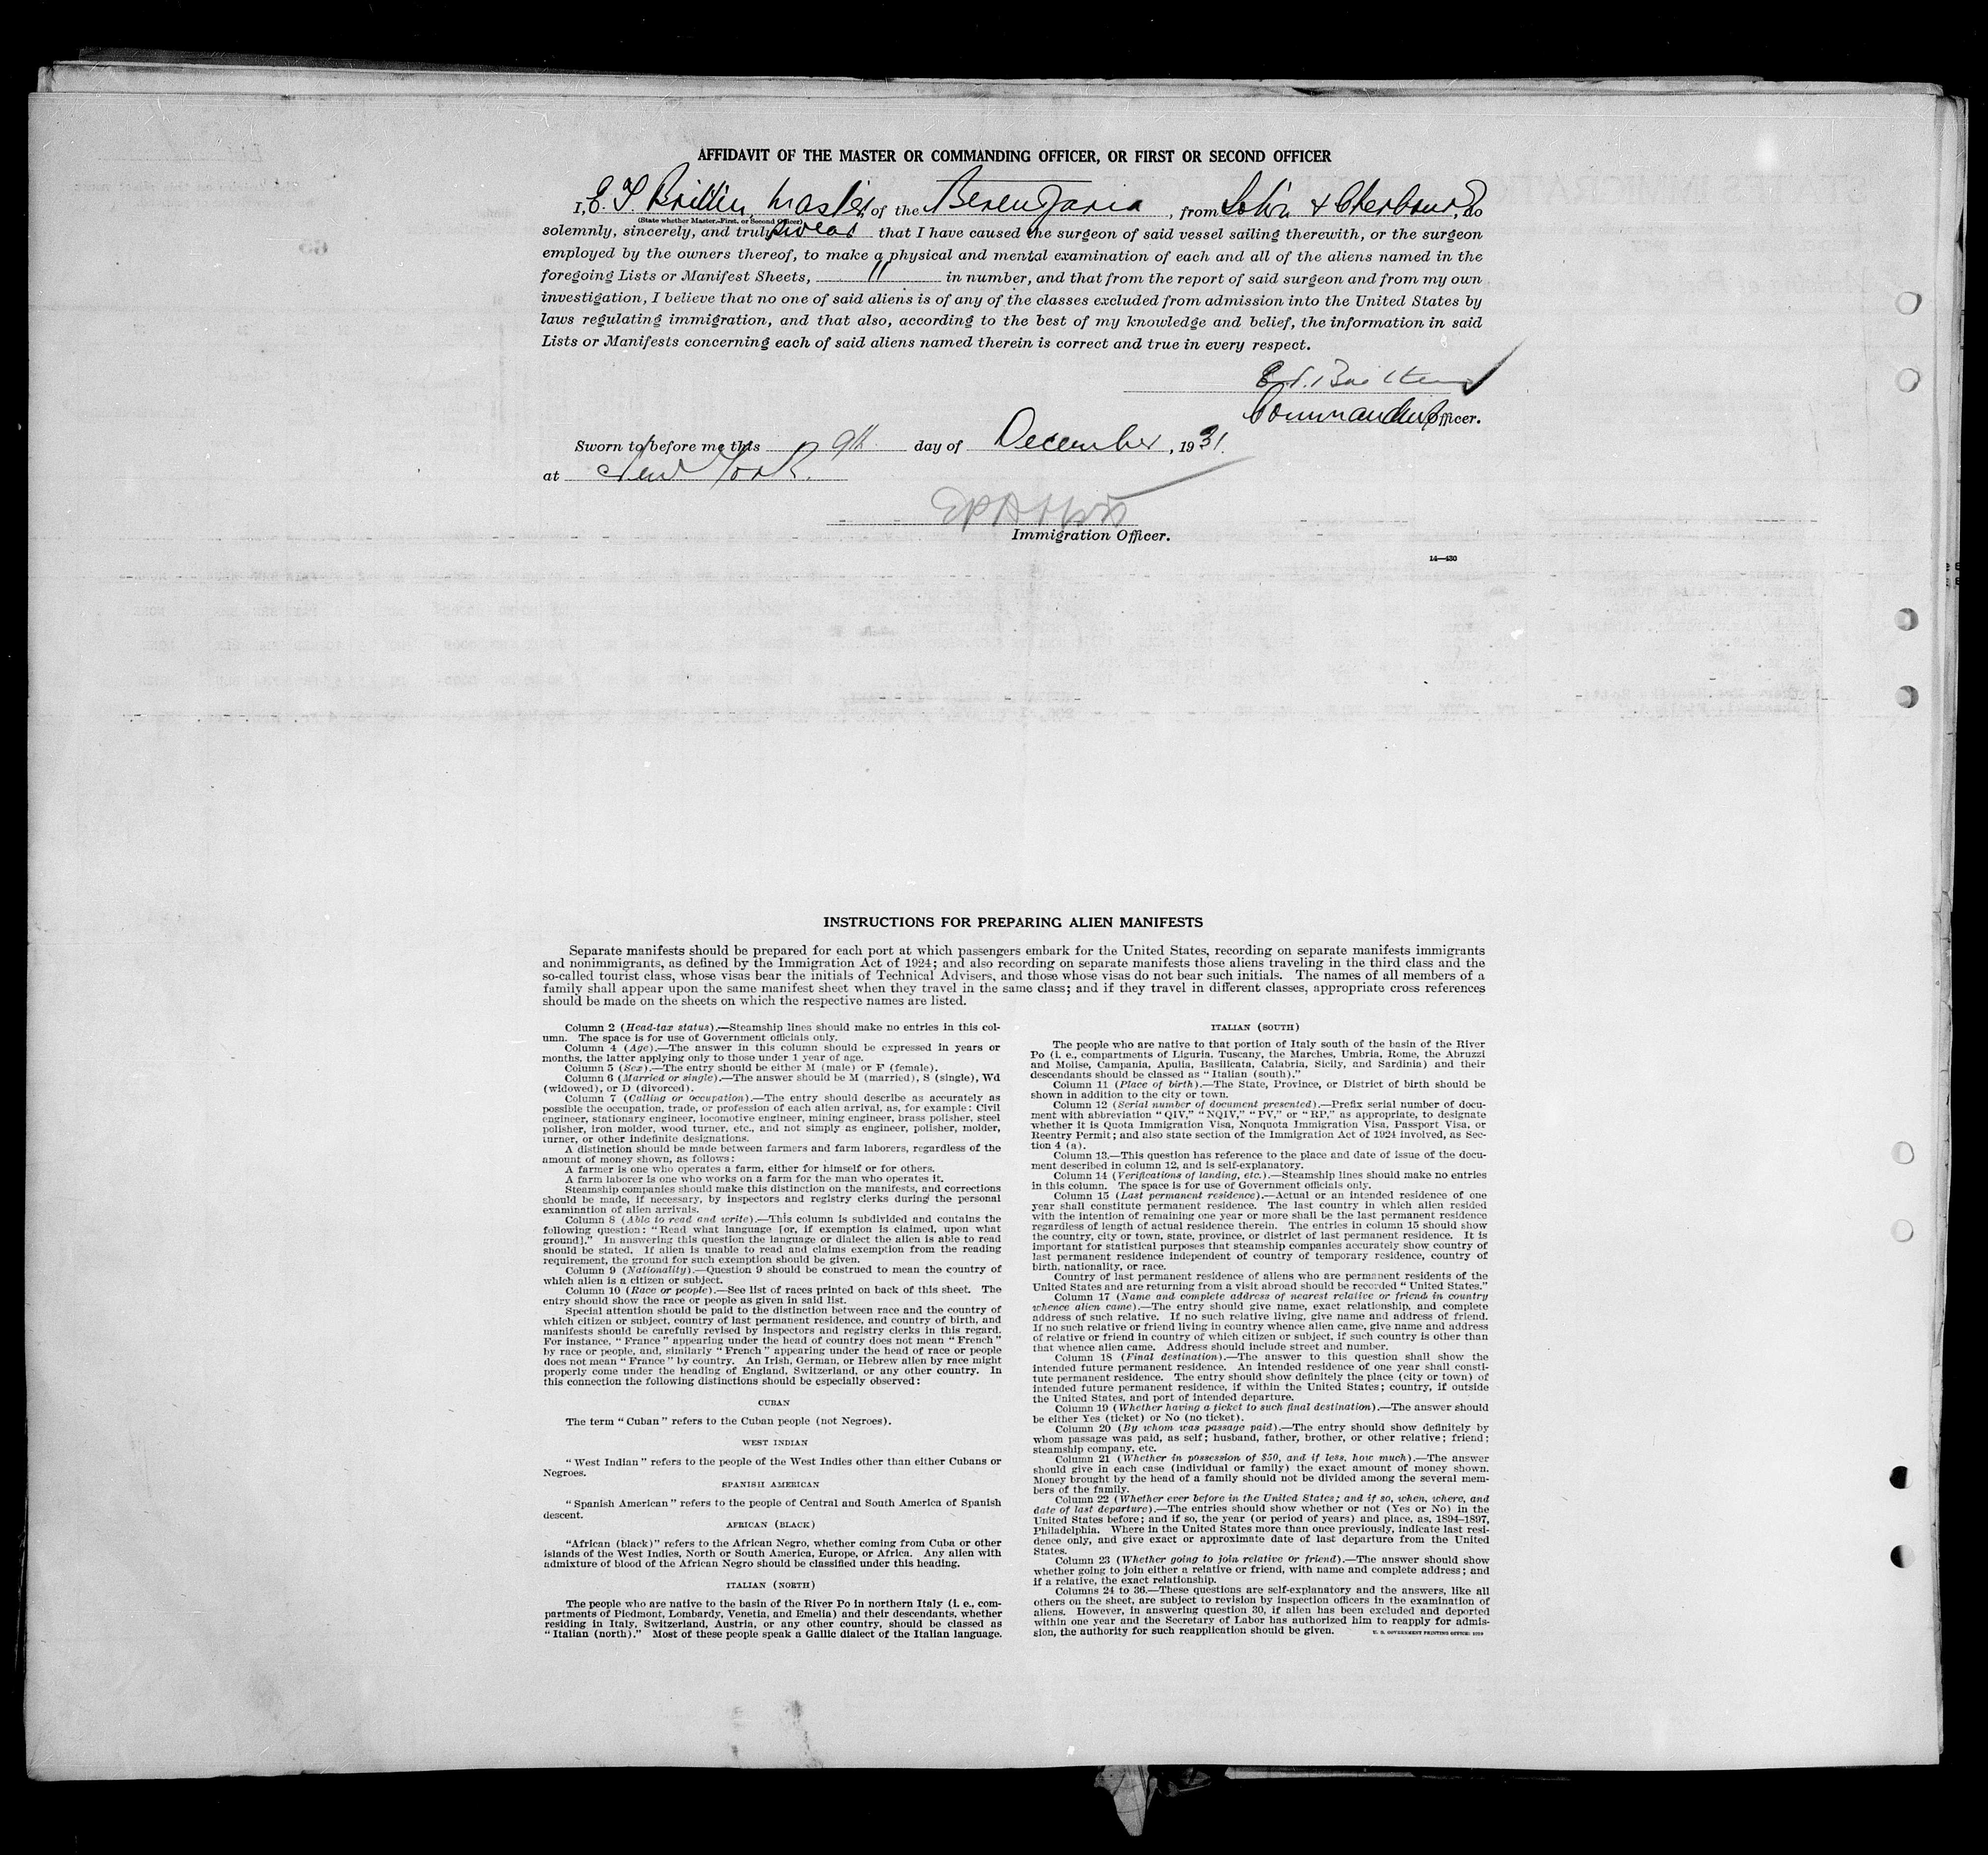 AFFIDAVIT OF THE MASTER OR COMMANDING OFFICER, OR FIRST OR SECOND OFFICER
I, E. T. Britten, Master, of the Berengaria, from Soton & Cherbourg, do
(State whether Master, First, or Second Officer)
solemnly, sincerely, and truly swear that I have caused the surgeon of said vessel sailing therewith, or the surgeon
employed by the owners thereof, to make a physical and mental examination of each and all of the aliens named in the
foregoing Lists or Manifest Sheets, 11 in number, and that from the report of said surgeon and from my own
investigation, I believe that no one of said aliens is of any of the classes excluded from admission into the United States by
laws regulating immigration, and that also, according to the best of my knowledge and belief, the information in said
Lists or Manifests concerning each of said aliens named therein is correct and true in every respect.
E. T. Britten
Commander Officer.
Sworn to before me this 9th day of December, 1931.
at New York.
Immigration Officer.
14—430
INSTRUCTIONS FOR PREPARING ALIEN MANIFESTS
Separate manifests should be prepared for each port at which passengers embark for the United States, recording on separate manifests immigrants
and nonimmigrants, as defined by the Immigration Act of 1924; and also recording on separate manifests those aliens traveling in the third class and the
so-called tourist class, whose visas bear the initials of Technical Advisers, and those whose visas do not bear such initials. The names of all members of a
family shall appear upon the same manifest sheet when they travel in the same class; and if they travel in different classes, appropriate cross references
should be made on the sheets on which the respective names are listed.
Column 2 (Head-tax status).—Steamship lines should make no entries in this col-
umn. The space is for use of Government officials only.
Column 4 (Age).—The answer in this column should be expressed in years or
months, the latter applying only to those under 1 year of age.
Column 5 (Sex).—The entry should be either M (male) or F (female).
Column 6 (Married or single).—The answer should be M (married), S (single), Wd
(widowed), or D (divorced).
Column 7 (Calling or occupation).—The entry should describe as accurately as
possible the occupation, trade, or profession of each alien arrival, as, for example: Civil
engineer, stationary engineer, locomotive engineer, mining engineer, brass polisher, steel
polisher, iron molder, wood turner, etc., and not simply as engineer, polisher, molder,
turner, or other indefinite designations.
A distinction should be made between farmers and farm laborers, regardless of the
amount of money shown, as follows:
A farmer is one who operates a farm, either for himself or for others.
A farm laborer is one who works on a farm for the man who operates it.
Steamship companies should make this distinction on the manifests, and corrections
should be made, if necessary, by inspectors and registry clerks during the personal
examination of alien arrivals.
Column 8 (Able to read and write).—This column is subdivided and contains the
following question: "Read what language [or, if exemption is claimed, upon what
ground]." In answering this question the language or dialect the alien is able to read
should be stated. If alien is unable to read and claims exemption from the reading
requirement, the ground for such exemption should be given.
Column 9 (Nationality).—Question 9 should be construed to mean the country of
which alien is a citizen or subject.
Column 10 (Race or people).—See list of races printed on back of this sheet. The
entry should show the race or people as given in said list.
Special attention should be paid to the distinction between race and the country of
which citizen or subject, country of last permanent residence, and country of birth, and
manifests should be carefully revised by inspectors and registry clerks in this regard.
For instance, "France" appearing under the head of country does not mean "French"
by race or people, and, similarly "French" appearing under the head of race or people
does not mean "France" by country. An Irish, German, or Hebrew alien by race might
properly come under the heading of England, Switzerland, or any other country. In
this connection the following distinctions should be especially observed:
CUBAN
The term "Cuban" refers to the Cuban people (not Negroes).
WEST INDIAN
"West Indian" refers to the people of the West Indies other than either Cubans or
Negroes.
SPANISH AMERICAN
"Spanish American" refers to the people of Central and South America of Spanish
descent.
AFRICAN (BLACK)
"African (black)" refers to the African Negro, whether coming from Cuba or other
islands of the West Indies, North or South America, Europe, or Africa. Any alien with
admixture of blood of the African Negro should be classified under this heading.
ITALIAN (NORTH)
The people who are native to the basin of the River Po in northern Italy (i. e., com-
partments of Piedmont, Lombardy, Venetia, and Emelia) and their descendants, whether
residing in Italy, Switzerland, Austria, or any other country, should be classed as
"Italian (north)." Most of these people speak a Gallic dialect of the Italian language.
ITALIAN (SOUTH)
The people who are native to that portion of Italy south of the basin of the River
Po (i. e., compartments of Liguria, Tuscany, the Marches, Umbria, Rome, the Abruzzi
and Molise, Campania, Apulia, Basilicata, Calabria, Sicily, and Sardinia) and their
descendants should be classed as "Italian (south)."
Column 11 (Place of birth).—The State, Province, or District of birth should be
shown in addition to the city or town.
Column 12 (Serial number of document presented).—Prefix serial number of docu-
ment with abbreviation "QIV," "NQIV," "PV," or "RP," as appropriate, to designate
whether it is Quota Immigration Visa, Nonquota Immigration Visa, Passport Visa, or
Reentry Permit; and also state section of the Immigration Act of 1924 involved, as Sec-
tion 4 (a).
Column 13.—This question has reference to the place and date of issue of the docu-
ment described in column 12, and is self-explanatory.
Column 14 (Verifications of landing, etc.).—Steamship lines should make no entries
in this column. The space is for use of Government officials only.
Column 15 (Last permanent residence).—Actual or an intended residence of one
year shall constitute permanent residence. The last country in which alien resided
with the intention of remaining one year or more shall be the last permanent residence
regardless of length of actual residence therein. The entries in column 15 should show
the country, city or town, state, province, or district of last permanent residence. It is
important for statistical purposes that steamship companies accurately show country of
last permanent residence independent of country of temporary residence, country of
birth, nationality, or race.
Country of last permanent residence of aliens who are permanent residents of the
United States and are returning from a visit abroad should be recorded "United States."
Column 17 (Name and complete address of nearest relative or friend in country
whence alien came).—The entry should give name, exact relationship, and complete
address of such relative. If no such relative living, give name and address of friend.
If no such relative or friend living in country whence alien came, give name and address
of relative or friend in country of which citizen or subject, if such country is other than
that whence alien came. Address should include street and number.
Column 18 (Final destination).—The answer to this question shall show the
intended future permanent residence. An intended residence of one year shall consti-
tute permanent residence. The entry should show definitely the place (city or town) of
intended future permanent residence, if within the United States; country, if outside
the United States, and port of intended departure.
Column 19 (Whether having a ticket to such final destination).—The answer should
be either Yes (ticket) or No (no ticket).
Column 20 (By whom was passage paid).—The entry should show definitely by
whom passage was paid, as self; husband, father, brother, or other relative; friend;
steamship company, etc.
Column 21 (Whether in possession of $50, and if less, how much).—The answer
should give in each case (individual or family) the exact amount of money shown.
Money brought by the head of a family should not be divided among the several mem-
bers of the family.
Column 22 (Whether ever before in the United States; and if so, when, where, and
date of last departure).—The entries should show whether or not (Yes or No) in the
United States before; and if so, the year (or period of years) and place, as, 1894–1897,
Philadelphia. Where in the United States more than once previously, indicate last resi-
dence only, and give exact or approximate date of last departure from the United
States.
Column 23 (Whether going to join relative or friend).—The answer should show
whether going to join either a relative or friend, with name and complete address; and
if a relative, the exact relationship.
Columns 24 to 36.—These questions are self-explanatory and the answers, like all
others on the sheet, are subject to revision by inspection officers in the examination of
aliens. However, in answering question 30, if alien has been excluded and deported
within one year and the Secretary of Labor has authorized him to reapply for admis-
sion, the authority for such reapplication should be given.
U. S. GOVERNMENT PRINTING OFFICE: